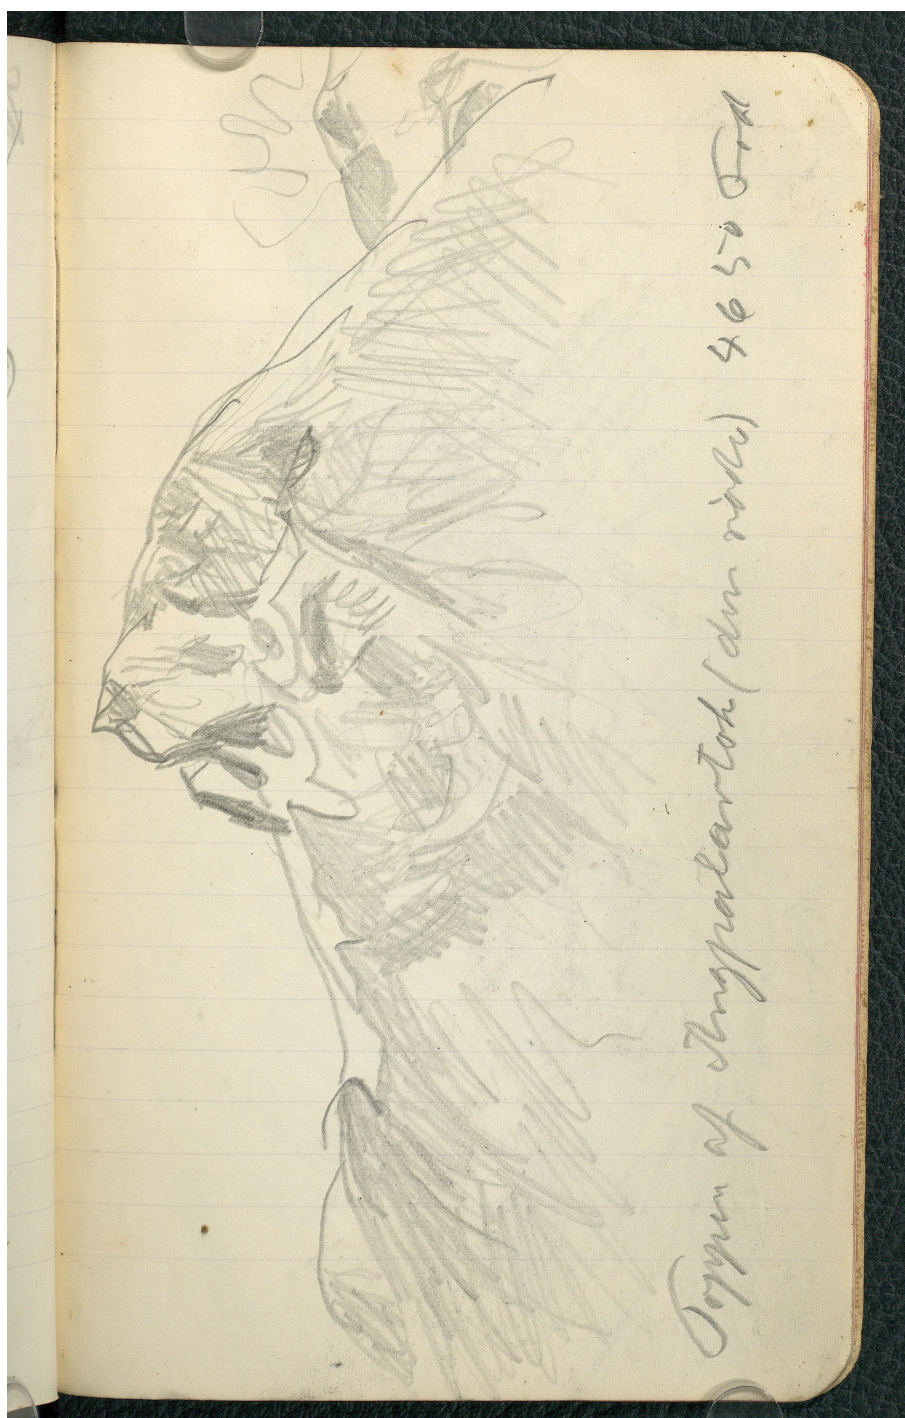 Toppen af Angpalartok (den nordre) 4650 Fod